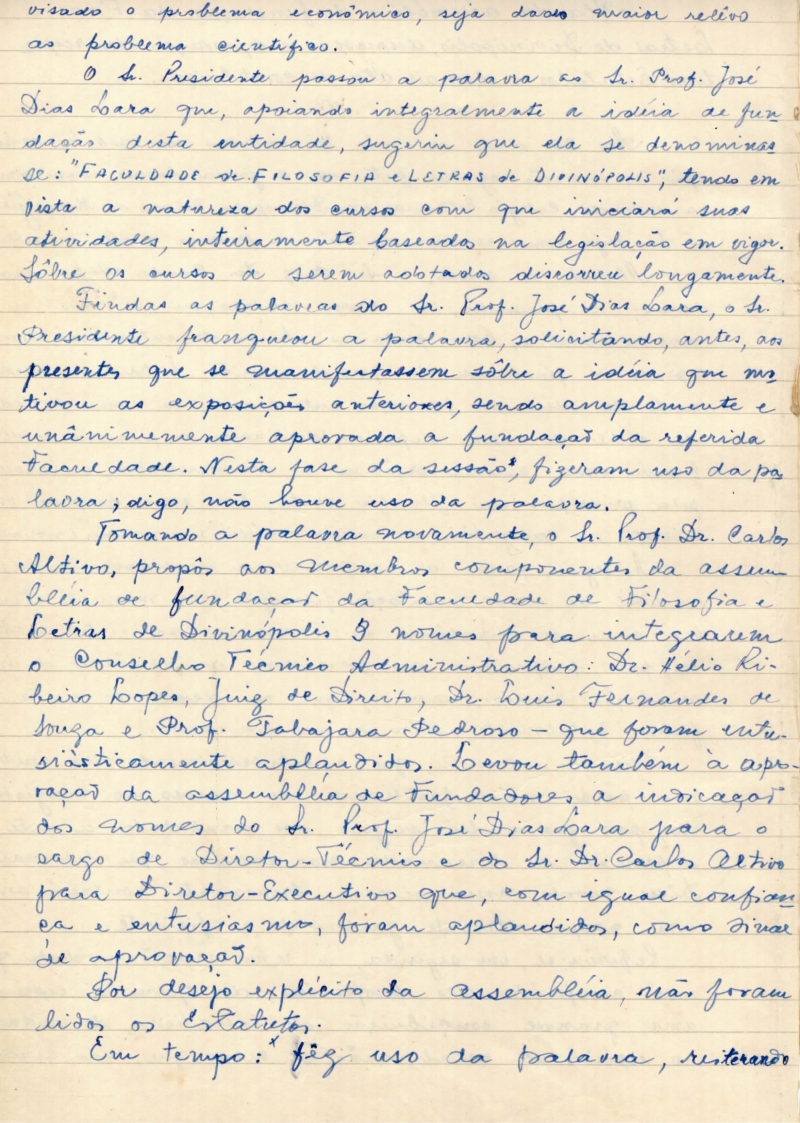 visado o problema econômico, seja dado maior relêvo
ao problema científico.
O Sr. Presidente passou a palavra ao Sr. Prof. José
Dias Lara que, apoiando integralmente a idéia de fun-
dação desta entidade, sugeriu que ela se denominas-
se: "FACULDADE de FILOSOFIA e LETRAS de DIVINÓPOLIS", tendo em
vista a natureza dos cursos com que iniciará suas
atividades, inteiramente baseados na legislação em vigor.
Sôbre os cursos a serem adotados discorreu longamente.
Findas as palavras do Sr. Prof. José Dias Lara, o Sr.
Presidente franqueou a palavra, solicitando, antes, aos
presentes que se manifestassem sôbre a idéia que mo-
tivou as exposições anteriores, sendo amplamente e
unânimemente aprovada a fundação da referida
Faculdade. Nesta fase da sessão*, fizeram uso da pa-
lavra; digo, não houve uso da palavra.
Tomando a palavra novamente, o Sr. Prof. Dr. Carlos
Altivo, propôs aos membros componentes da assem-
bléia de fundação da Faculdade de Filosofia e
Letras de Divinópolis 3 nomes para integrarem
o Conselho Técnico Administrativo: Dr. Hélio Ri-
beiro Lopes, Juiz de Direito, Dr. Luis Fernandes de
Souza e Prof. Tabajara Pedroso - que foram entu-
siàsticamente aplaudidos. Levou também à apro-
vação da assembléia de Fundadores a indicação
dos nomes do Sr. Prof. José Dias Lara para o
cargo de Diretor-Técnico e do Sr. Dr. Carlos Altivo
para Diretor-Executivo que, com igual confian-
ça e entusiasmo, foram aplaudidos, como sinal
de aprovação.
Por desejo explícito da assembléia, não foram
lidos os Estatutos.
Em tempo: x fêz uso da palavra, reiterando